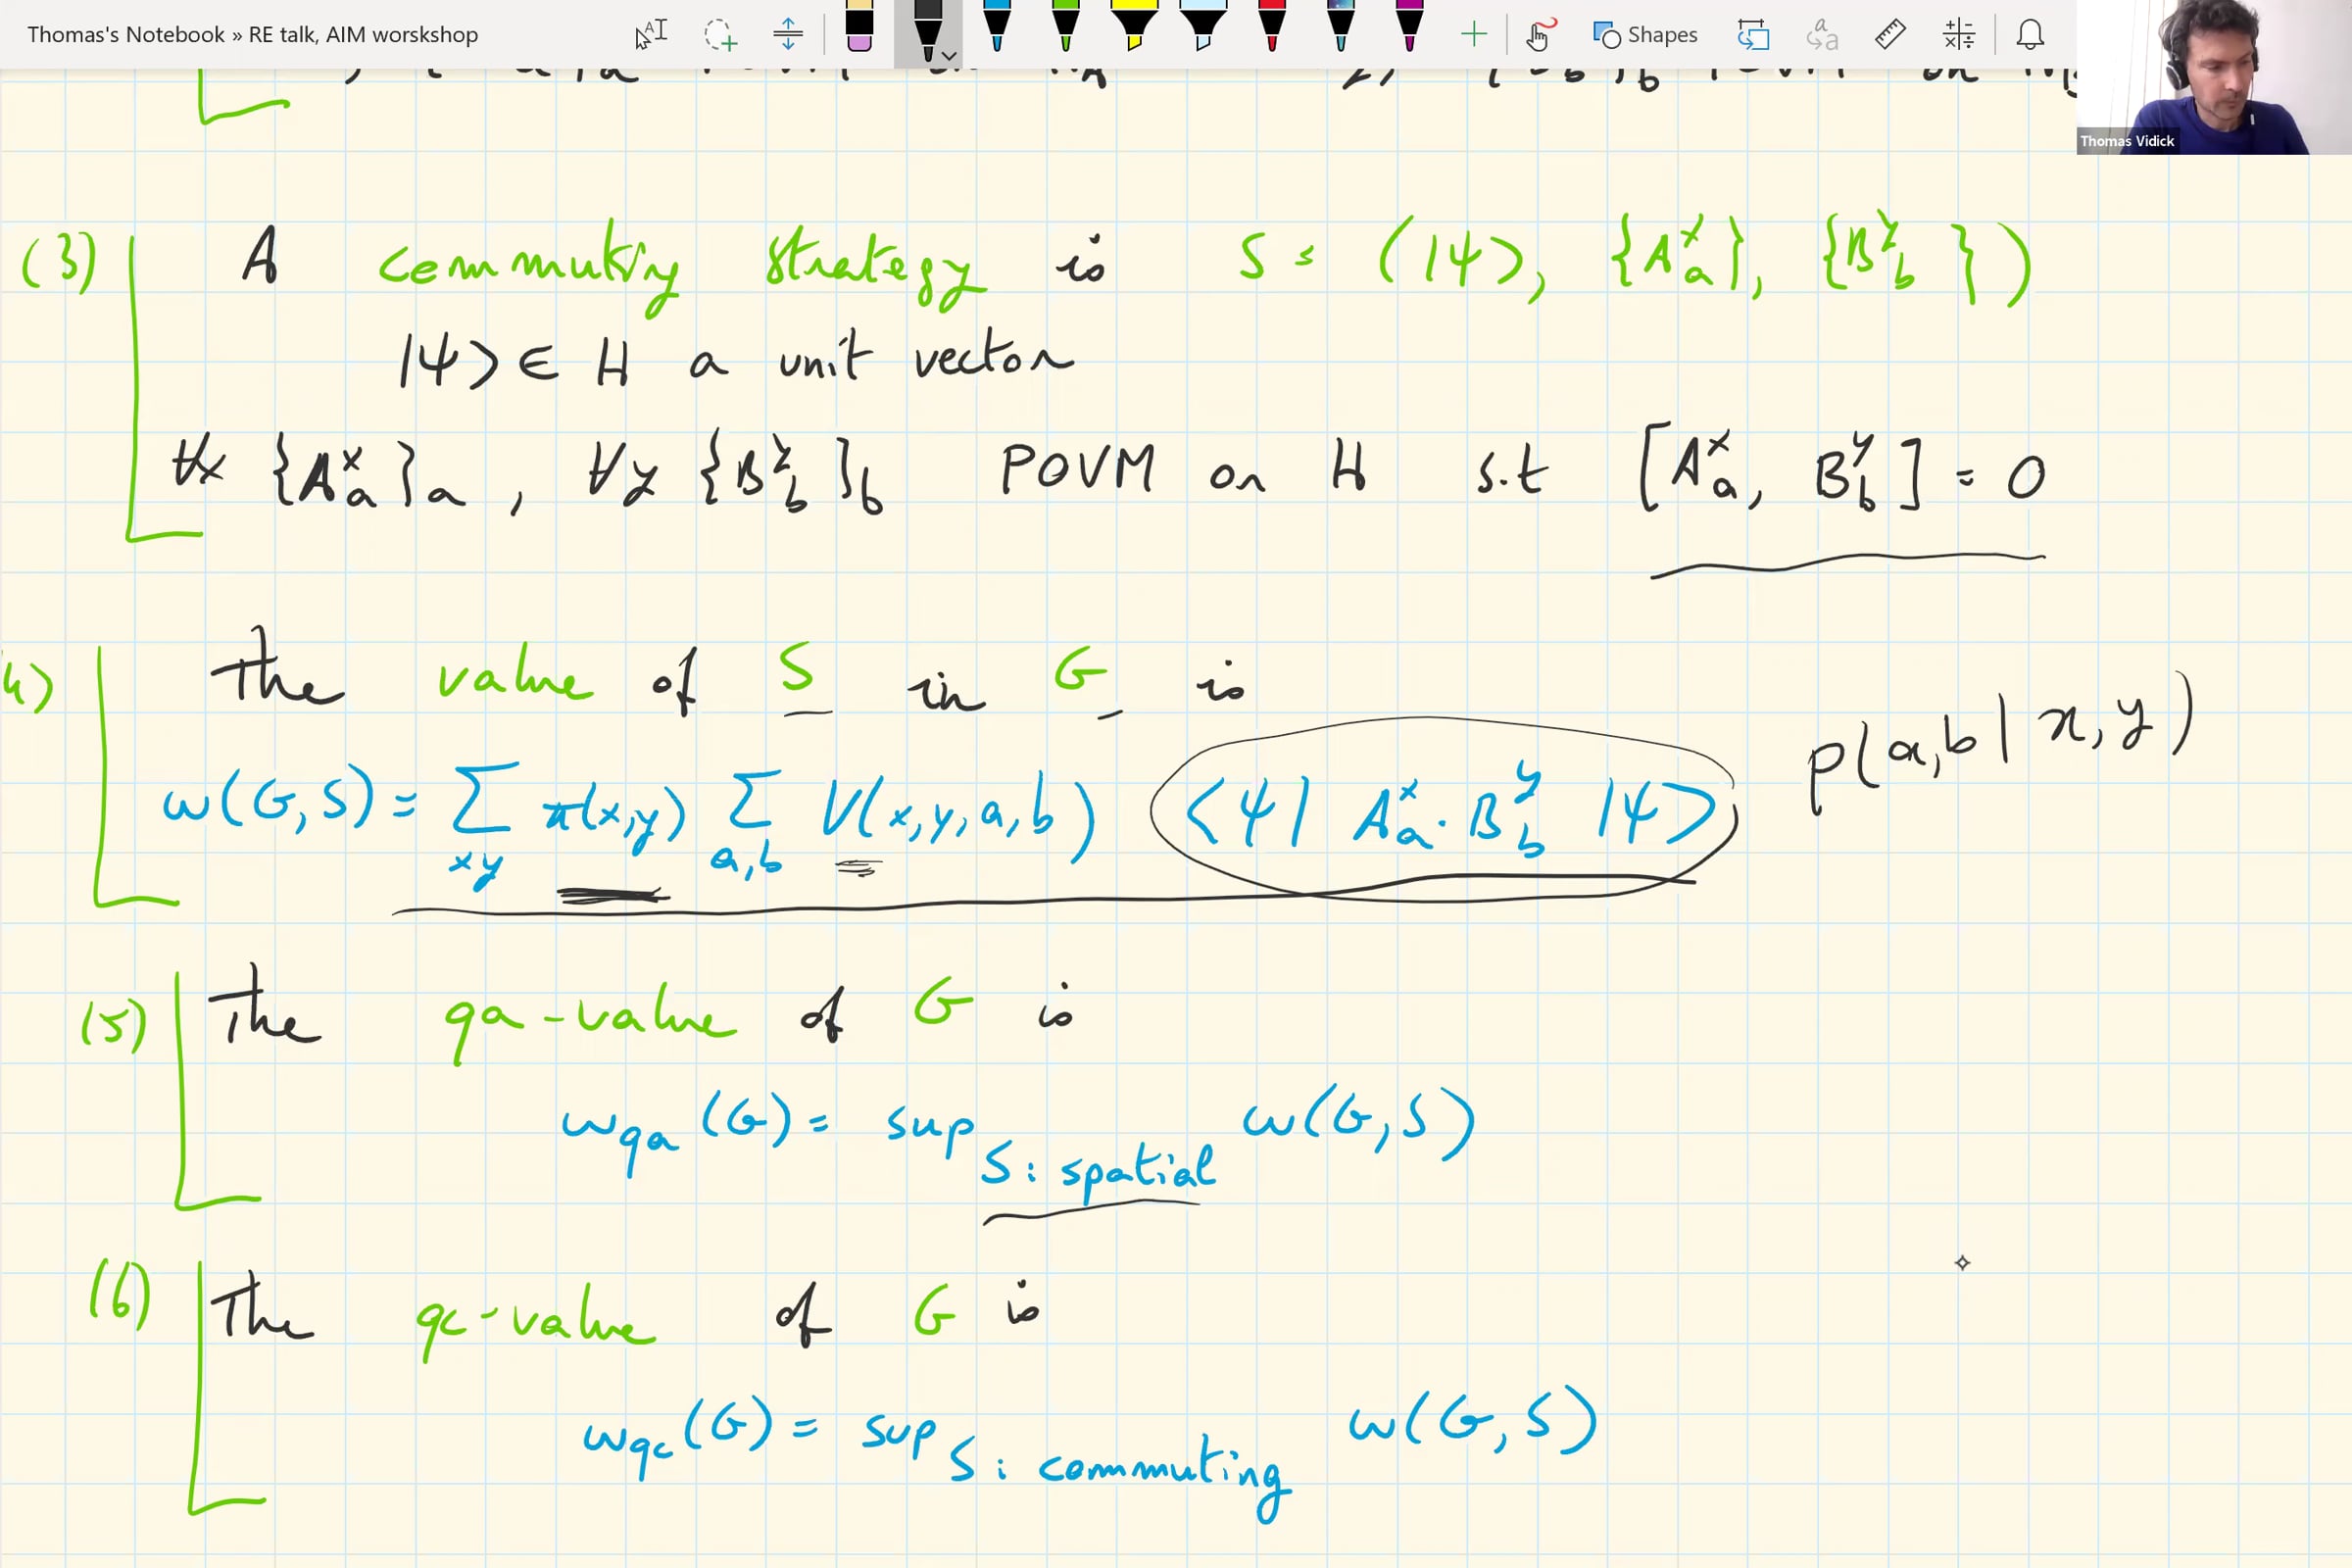 Thomas's Notebook » RE talk, AIM worskshop
Shapes
Thomas Vidick
(3) A commuting strategy is S = (|ψ⟩, {A^x_a}, {B^y_b})
|ψ⟩ ∈ H a unit vector
∀x {A^x_a}_a , ∀y {B^y_b}_b POVM on H s.t [A^x_a, B^y_b] = 0
The value of S in G is
p(a,b | x,y)
ω(G,S) = ∑_{xy} π(x,y) ∑_{a,b} V(x,y,a,b) ⟨ψ| A^x_a · B^y_b |ψ⟩
(5) The qa-value of G is
ω_{qa}(G) = sup_{S: spatial} ω(G,S)
(6) The qc-value of G is
ω_{qc}(G) = sup_{S: commuting} ω(G,S)